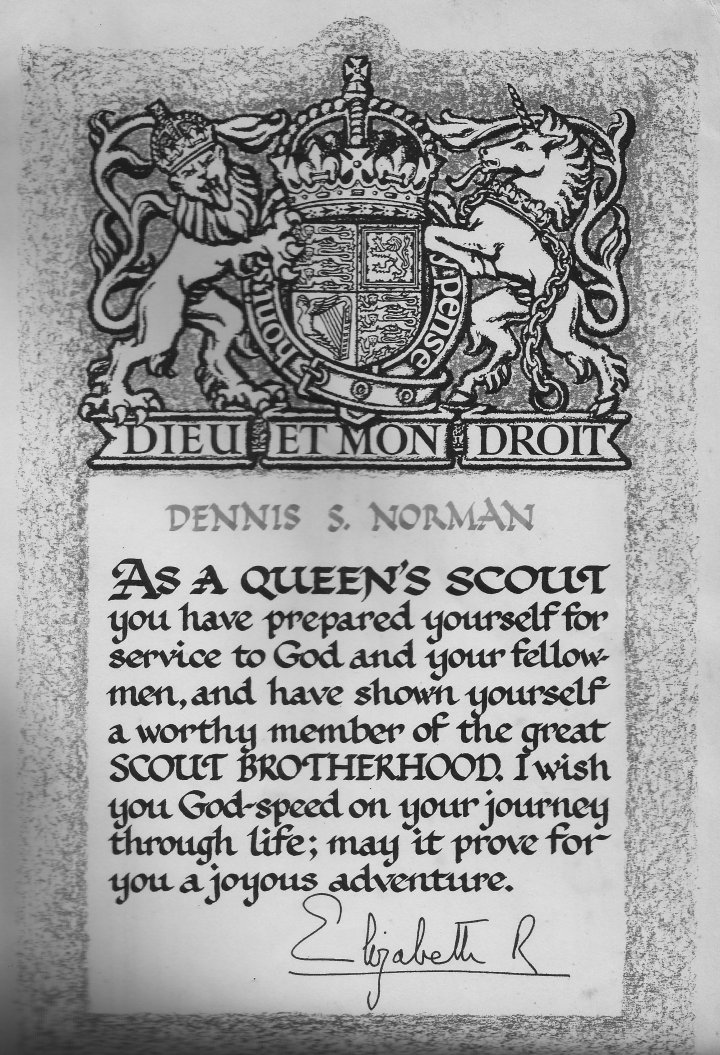 honi s
pense
DIEU ET MON DROIT
DENNIS S. NORMAN
AS A QUEEN'S SCOUT
you have prepared yourself for
service to God and your fellow-
men, and have shown yourself
a worthy member of the great
SCOUT BROTHERHOOD. I wish
you God-speed on your journey
through life; may it prove for
you a joyous adventure.
Elizabeth R